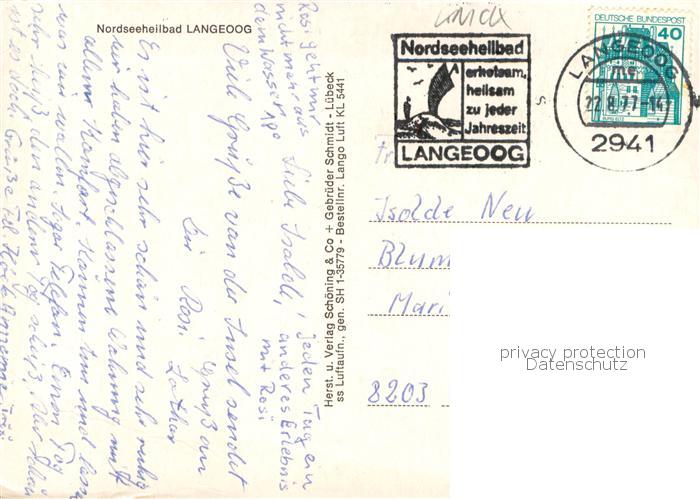 Nordseeheilbad LANGEOOG
Rosi geht mir
nicht mehr aus
dem Wasser 18°
Liebe Isolde,
Viele Grüße von der Insel sendet
Rosi
Lothar
Gruß an
jeden Tag ein
anderes Erlebnis
mit Rosi
Es ist hier sehr schön und sehr ruhig
wir haben abgeschlossene Wohnung mit
allem Komfort. Können tun und lassen
was wir wollen. Sogar Telefon. Einen Tag
sehr heiß den andern Tag
ist es doch Grüße
Herst. u. Verlag Schöning & Co + Gebrüder Schmidt - Lübeck
ss Luftaufn., gen. SH 1-35779 - Bestellnr. Lango Luft KL 5441
Nordseeheilbad
erholsam,
heilsam
zu jeder
Jahreszeit
LANGEOOG
DEUTSCHE BUNDESPOST
40
LANGEOOG
22.8.77-14
2941
Fr
Isolde Neu
Blum
Mari
8203
privacy protection
Datenschutz